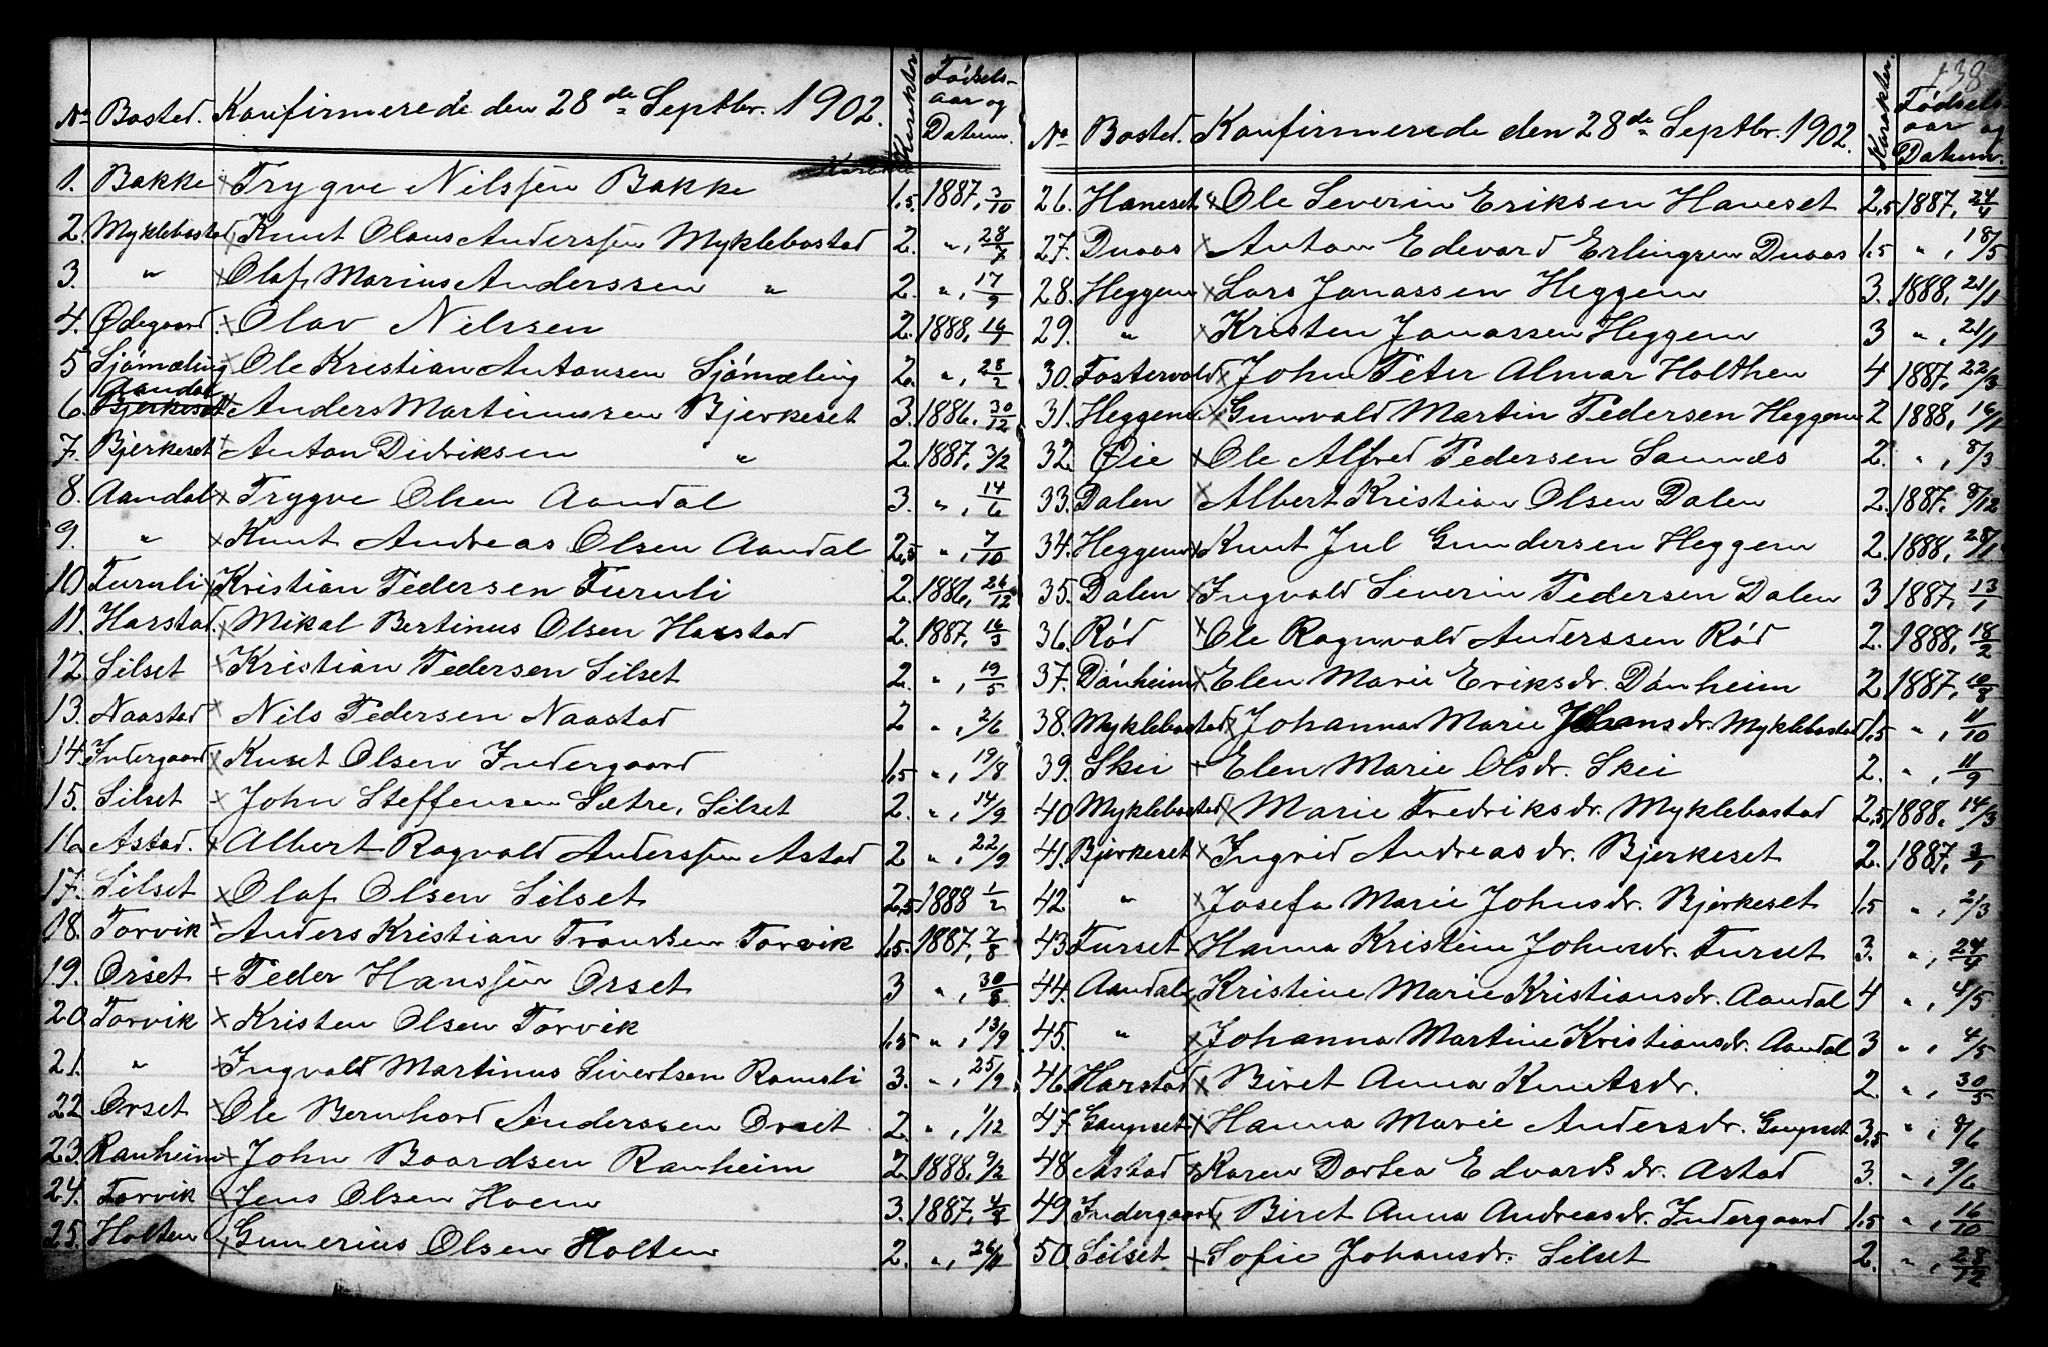 No Bosted. Konfirmerede den 28de Septbr. 1902. Karakter Fødsels-aar og Datum.
1. Bakke × Trygve Nilssen Bakke 1,5. 1887, 3/10
2. Myklebostad × Knut Olaus Anderssen Myklebostad 2. „, 28/7
3. „ × Olaf Marius Anderssen „ 2. „, 17/9
4. Ødegaard × Olav Nilssen 2. 1888,
5 Sjømæling × Ole Kristian Antonsen Sjømæling 2. „, 28/2
6. Aandal × Anders Martinussen Bjerkeset 3. 1886. 30/12
7. Bjerkeset × Anton Didriksen „ 2. 1887, 3/2
8. Aandal × Trygve Olsen Aandal 3. „, 14/6
9. „ × Knut Andreas Olsen Aandal 2,5 „, 7/10
10 Furuli × Kristian Pedersen Furuli 2. 1886, 26/12
11. Harstad × Mikal Bertinus Olsen Harstad 2. 1887, 16/3
12. Silset × Kristian Pedersen Silset 2. „, 19/5
13. Naastad × Nils Pedersen Naastad 2 „, 2/6
14. Indergaard × Knut Olsen Indergaard 1,5 „, 19/8
15. Silset × John Steffensen Sætre, Silset 2. „, 14/9
16. Astad. × Albert Ragvald Anderssen Astad 2 „, 22/9
17. Silset × Olaf Olsen Silset 2,5 1888 1/2
18. Torvik × Anders Kristian Trondsen Torvik 1,5. 1887, 7/8
19. Orset × Peder Hanssen Orset 3 „, 30/8
20. Torvik × Kristen Olsen Torvik 1,5 „, 13/9
21. „ × Ingvald Martinus Sivertsen Ramsli 3. „, 25/9
22 Orset × Ole Bernhard Anderssen Orset 2. „, 1/12
23. Ranheim × John Baardsen Ranheim 2. 1888, 9/2
24. Torvik × Jens Olsen Hoem 3. 1887, 4/8
25. Holten × Gunerius Olsen Holten 2. „, 26/11
138
No Bosted. Konfirmerede den 28de Septbr. 1902. Karakter. Fødsels-aar og Datum.
26. Haneset × Ole Severin Eriksen Haneset 2,5 1887, 24/4
27. Duaas × Anton Edevard Erlingsen Duaas 1,5 „, 18/5
28. Heggem × Lars Jonassen Heggem 3. 1888, 21/1
29. „ × Kristen Jonassen Heggem 3 „, 21/1
30. Fostervold × John Peter Almar Holthen 4 1887, 22/3
31. Heggem × Gunvald Martin Pedersen Heggem 2 1888, 16/1
32. Øie × Ole Alfred Pedersen Sannes 2. „, 8/3
33. Dalen × Albert Kristian Olsen Dalen 2. 1887. 8/12
34. Heggem × Knut Jul Gundersen Heggem 2. 1888, 28/1
35. Dalen × Ingvald Severin Pedersen Dalen 3 1887, 13/1
36. Rød × Ole Ragnvald Anderssen Rød 2. 1888, 18/2
37. Dónheim × Elen Marie Eriksdr. Dónheim 2 1887, 10/8
38. Myklebostad × Johanna Marie Johansdr. Myklebostad 1,5 „, 11/10
39. Skei × Elen Marie Olsdr. Skei 2. „, 11/9
40 Myklebostad × Marie Fredriksdr. Myklebostad 2,5 1888, 14/3
41. Bjerkeset × Ingrid Andreasdr. Bjerkeset 2. 1887, 3/1
42 „ × Josefa Marie Johnsdr. Bjerkeset 1,5 „, 2/3
43 Furset × Hanna Kristine Johnsdr. Furset 3. „, 24/4
44. Aandal × Kristine Marie Kristiansdr. Aandal 4 „, 4/5
45. „ × Johanna Martine Kristiansdr. Aandal 3 „, 4/5
46. Harstad × Beret Anna Knutsdr. 2. „, 30/5
47. Gaupset × Hanna Marie Andersdr. Gaupset 3,5 „, 8/6
48 Astad × Karen Dortea Edvardsdr. Astad 3. „, 9/6
49. Indergaard × Beret Anna Andreasdr. Indergaard 1,5 „, 16/10
50. Silset × Sofie Johansdr. Silset 2. „, 28/12